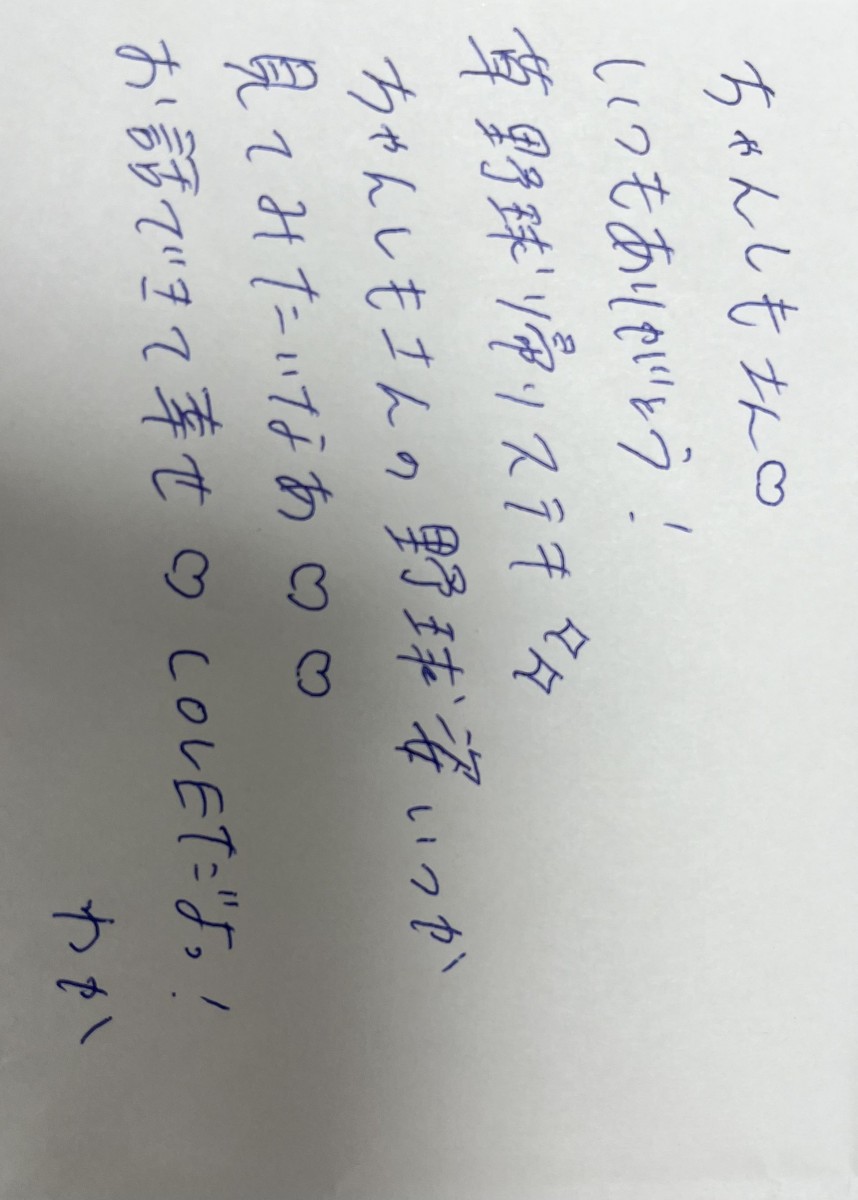 ちゃんしもさん♡
いつもありがとう!
草野球帰りステキ
ちゃんしもさんの野球姿いつか
見てみたいなあ♡♡
お話できて幸せ♡LOVEだよっ!
わか